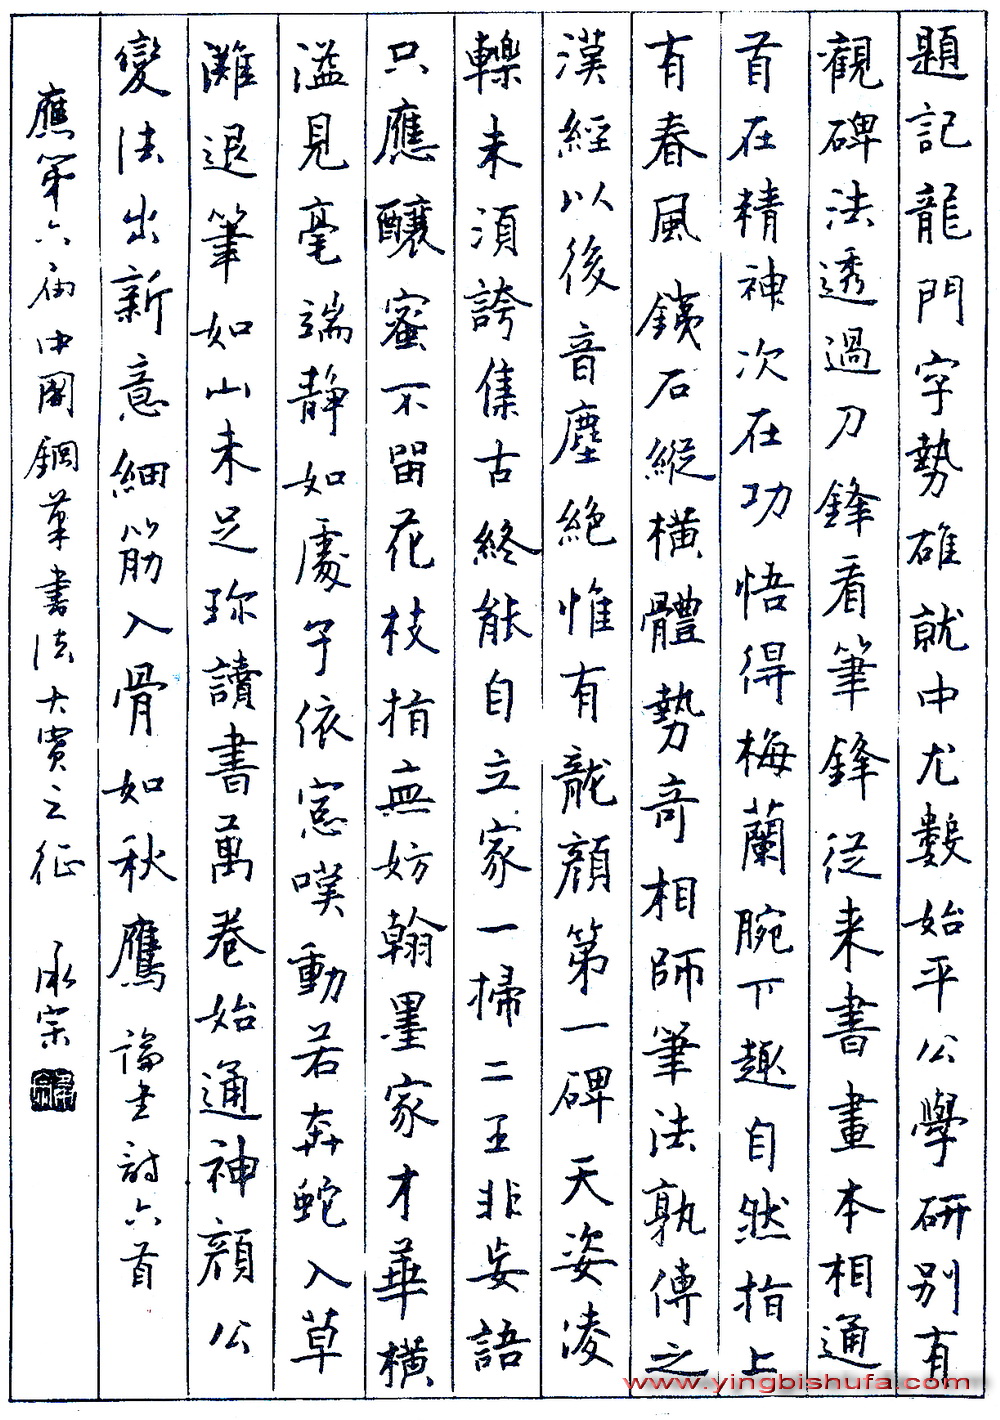 題記龍門字勢雄就中尤數始平公學研別有
觀碑法透過刀鋒看筆鋒從来書畫本相通
首在精神次在功悟得梅蘭腕下趣自然指上
有春風鐵石縱横體勢奇相師筆法孰傳之
漢經以後音塵絶惟有龍顔第一碑天姿凌
轢未須誇集古終能自立家一掃二王非妄語
只應釀蜜不留花枝指無妨翰墨家才華横
溢見毫端静如處子依窓嘆動若奔蛇入草
灘退筆如山未足珎讀書萬卷始通神顔公
變法出新意細筋入骨如秋鷹論書詩六首
應第六届中國鋼筆書法大賽之征 承宗
www.yingbishufa.com